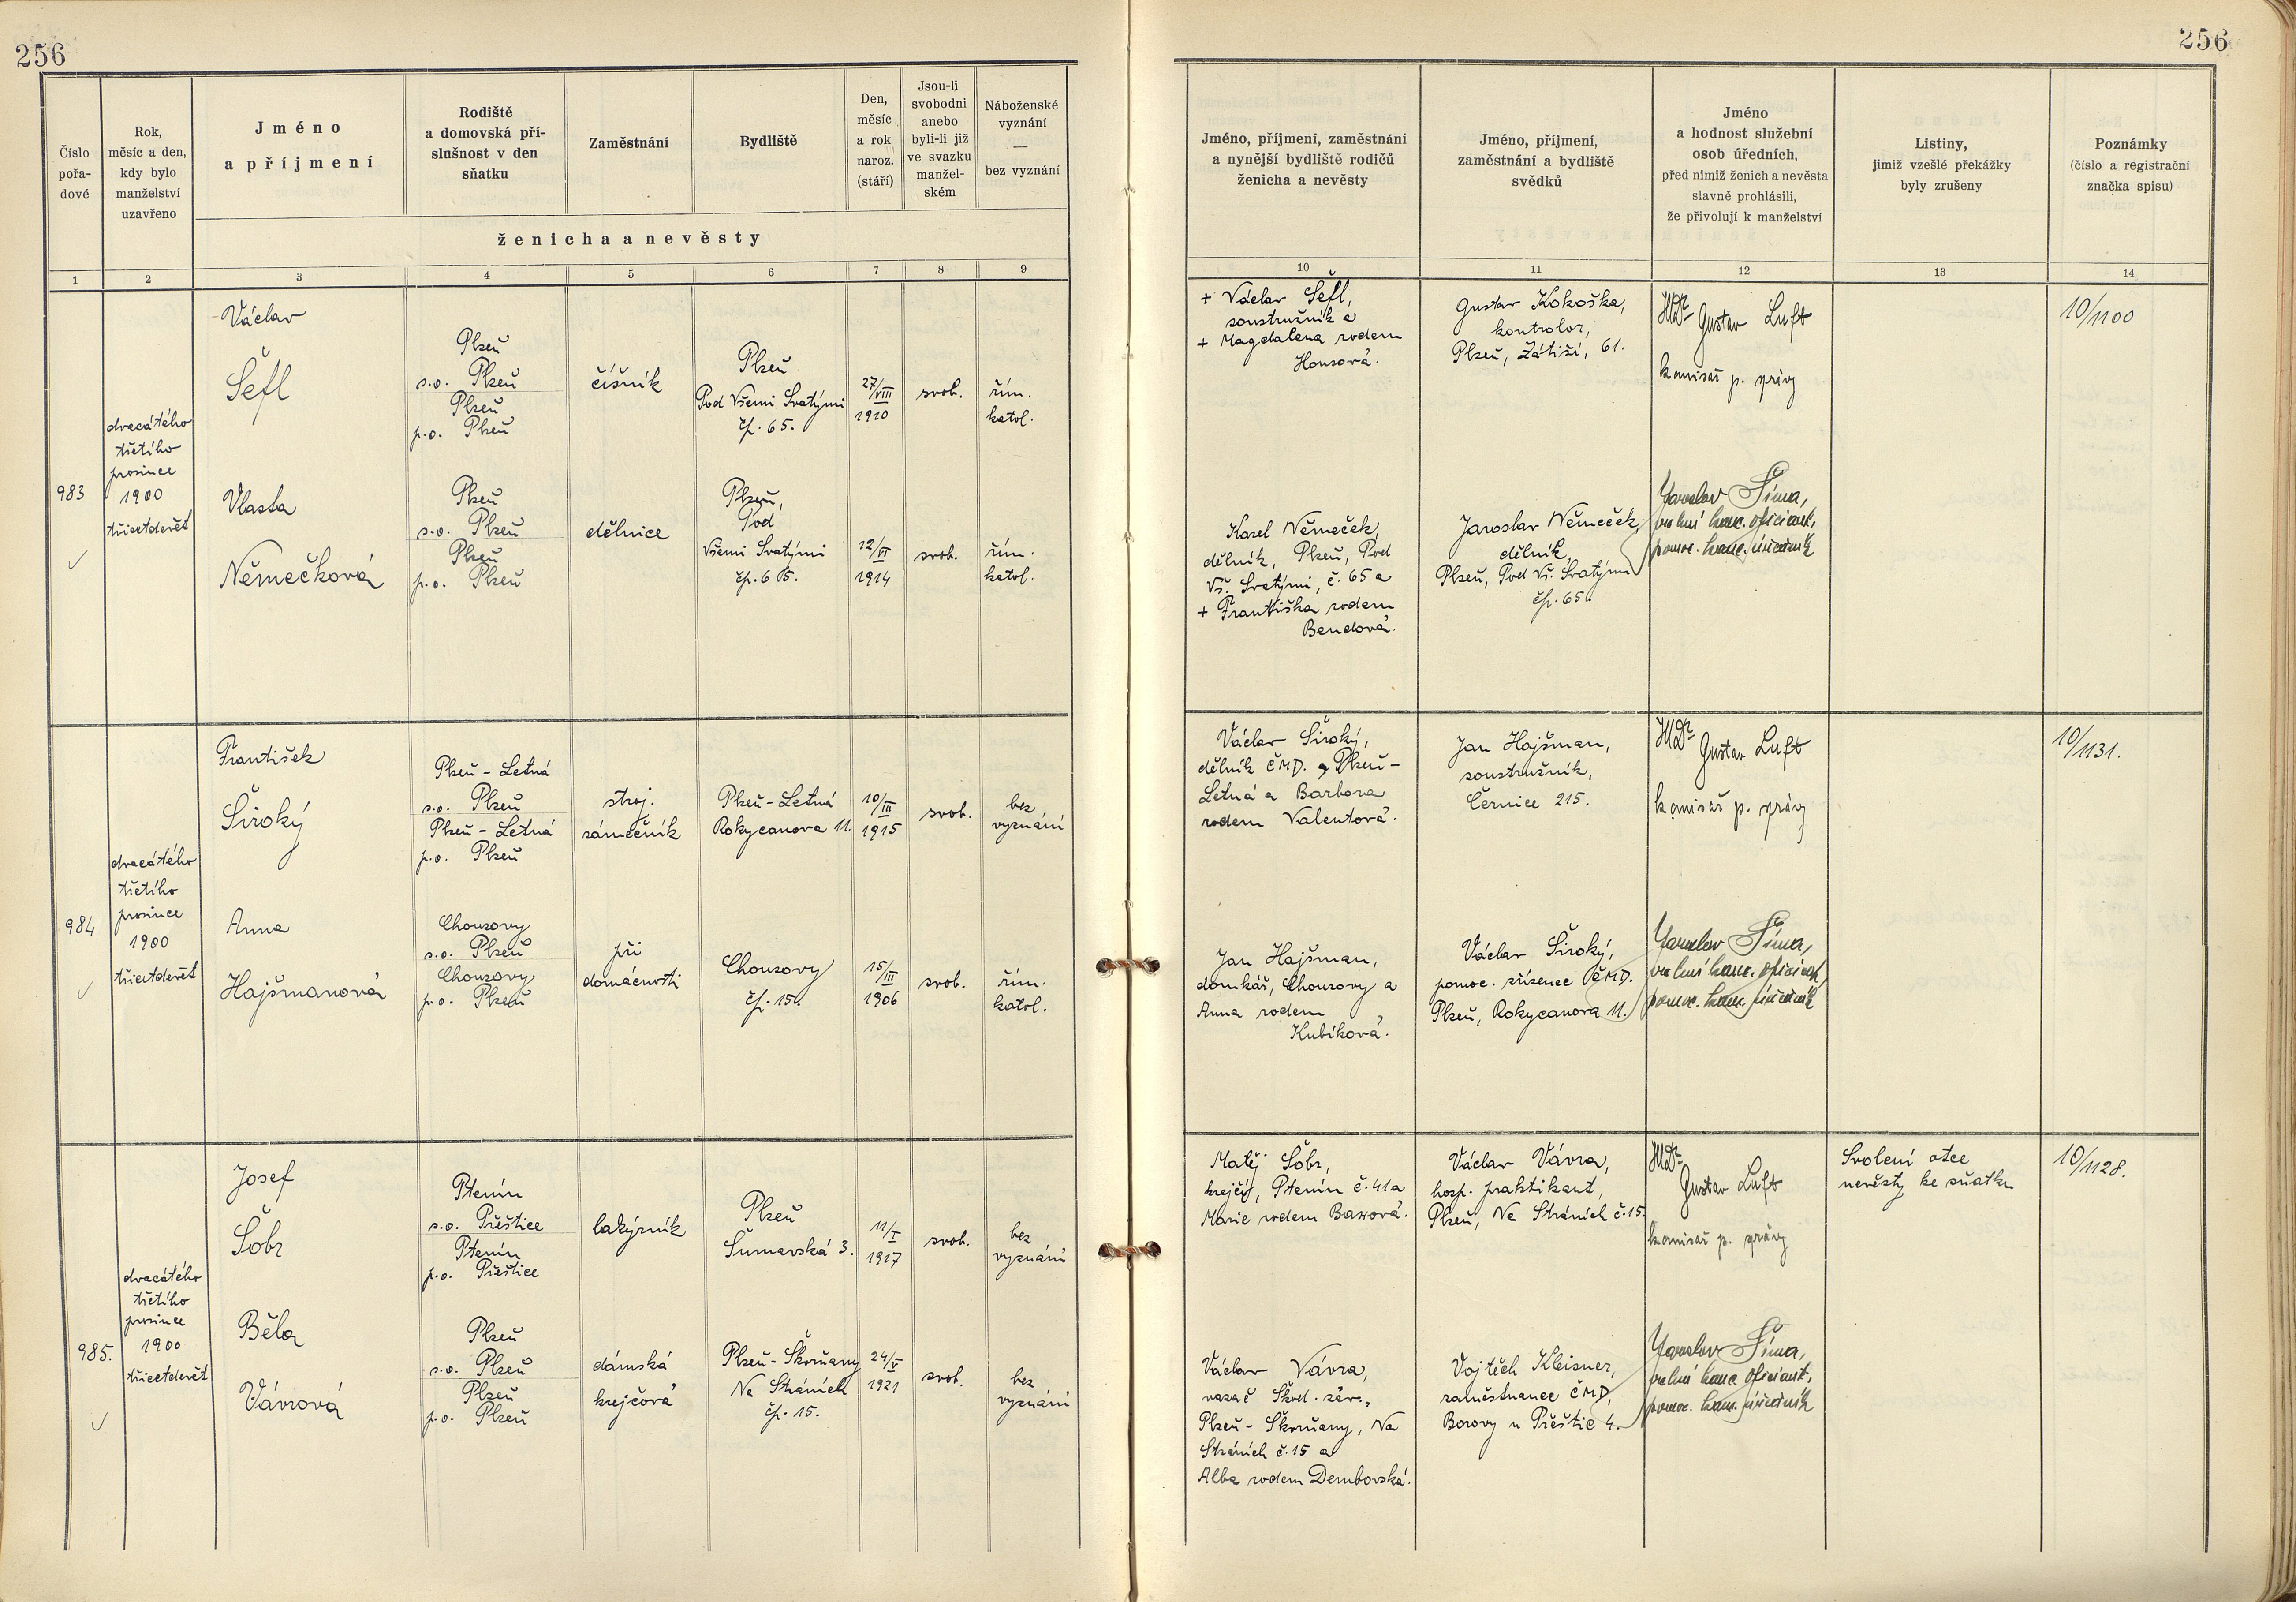 256
256
Číslo
pořa-
dové
Rok,
měsíc a den,
kdy bylo
manželství
uzavřeno
Jméno
a příjmení
Rodiště
a domovská pří-
slušnost v den
sňatku
Zaměstnání
Bydliště
Den,
měsíc
a rok
naroz.
(stáří)
Jsou-li
svobodni
anebo
byli-li již
ve svazku
manžel-
ském
Náboženské
vyznání
—
bez vyznání
ženicha a nevěsty
1 2 3 4 5 6 7 8 9
Jméno, příjmení, zaměstnání
a nynější bydliště rodičů
ženicha a nevěsty
Jméno, příjmení,
zaměstnání a bydliště
svědků
Jméno
a hodnost služební
osob úředních,
před nimiž ženich a nevěsta
slavně prohlásili,
že přivolují k manželství
Listiny,
jimiž vzešlé překážky
byly zrušeny
Poznámky
(číslo a registrační
značka spisu)
10 11 12 13 14
983
dvacátého
třetího
prosince
1900
třicetdevět
Václav
Šefl
Plzeň
s.o. Plzeň
Plzeň
p.o. Plzeň
číšník
Plzeň
Pod Všemi Svatými
čp. 65.
27/VIII
1910
svob.
řím.
katol.
Vlasta
Němečková
Plzeň
s.o. Plzeň
Plzeň
p.o. Plzeň
dělnice
Plzeň,
Pod
Všemi Svatými
čp. 65.
12/VI
1914
svob.
řím.
katol.
+ Václav Šefl,
soustružník a
+ Magdalena rodem
Housová.
Gustav Kokoška,
kontrolor,
Plzeň, Zátiší, 61.
JUDr Gustav Luft
komisař p. správy
10/1100
Karel Němeček,
dělník, Plzeň, Pod
Vš. Svatými, č. 65 a
+ Františka rodem
Bendová.
Jaroslav Němeček
dělník,
Plzeň, Pod Vš. Svatými
čp. 65.
Jaroslav Šíma,
kanc. oficiant,
pomoc. kanc. úředník
984
dvacátého
třetího
prosince
1900
třicetdevět
František
Široký
Plzeň - Letná
s.o. Plzeň
Plzeň - Letná
p.o. Plzeň
stroj.
zámečník
Plzeň - Letná
Rokycanova 11.
10/III
1915
svob.
bez
vyznání
Anna
Hajšmanová
Chouzovy
s.o. Plzeň
Chouzovy
p.o. Plzeň
při
domácnosti
Chouzovy
čp. 15.
15/III
1906
svob.
řím.
katol.
Václav Široký,
dělník ČMD. Plzeň -
Letná a Barbora
rodem Valentová.
Jan Hajšman,
soustružník,
Černice 215.
JUDr Gustav Luft
komisař p. správy
10/1131.
Jan Hajšman,
domkář, Chouzovy a
Anna rodem
Kubíková.
Václav Široký,
pomoc. zřízenec ČMD.
Plzeň, Rokycanova 11.
Jaroslav Šíma,
kanc. oficiant,
pomoc. kanc. úředník
985.
dvacátého
třetího
prosince
1900
třicetdevět
Josef
Šobr
Ptenín
s.o. Přeštice
Ptenín
p.o. Přeštice
lakýrník
Plzeň
Šumavská 3.
11/I
1917
svob.
bez
vyznání
Běla
Vávrová
Plzeň
s.o. Plzeň
Plzeň
p.o. Plzeň
dámská
krejčová
Plzeň - Skvrňany
Na Stráních
čp. 15.
24/V
1921
svob.
bez
vyznání
Matěj Šobr,
krejčí, Ptenín č. 41 a
Marie rodem
Václav Vávra,
hosp. praktikant,
Plzeň, Na Stráních č. 15.
JUDr
Gustav Luft
komisař p. správy
Svolení otce
nevěsty ke sňatku
10/1128.
Václav Vávra,
vazač Škod. záv.,
Plzeň - Skvrňany, Na
Stráních č. 15 a
Alba rodem Dembovská.
Vojtěch Kleisner,
zaměstnanec ČMD,
Borovy u Přeštic 4.
Jaroslav Šíma,
kanc. oficiant,
pomoc. kanc. úředník